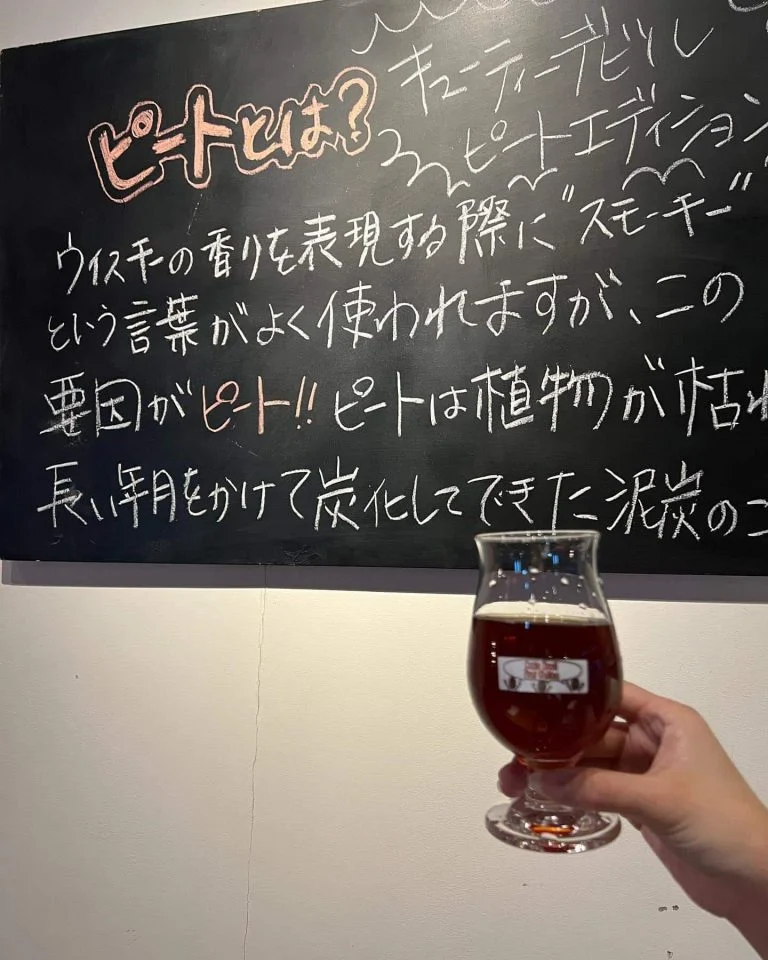 キューティーデビル
ピートとは?
ピートエディション
ウイスキーの香りを表現する際に"スモーキー"
という言葉がよく使われますが、この
要因がピート!! ピートは植物が枯れ
長い年月をかけて炭化してできた泥炭のこ